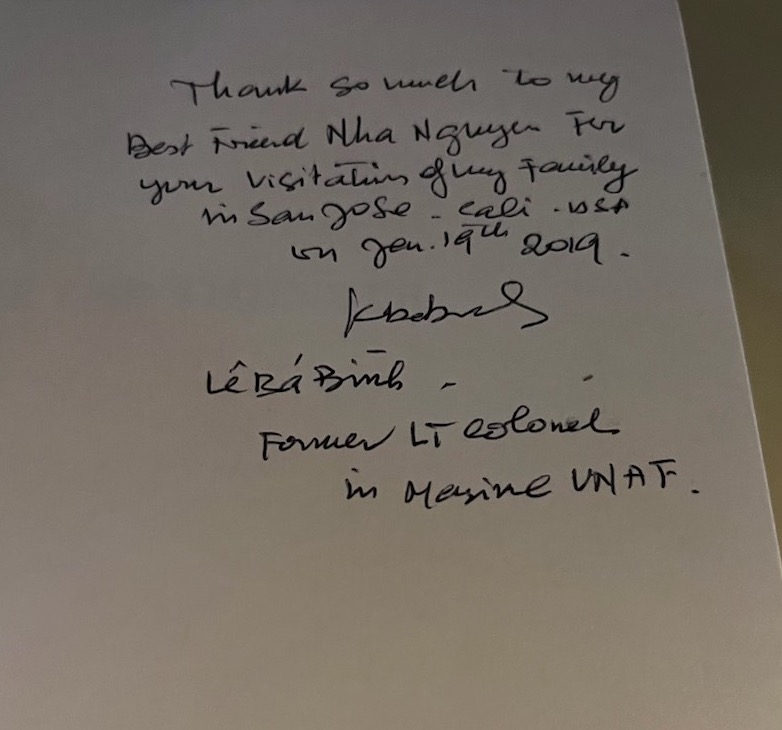 Thank so much to my
Best Friend Nha Nguyen For
your visitation of my Family
in San Jose - Cali - USA
on Jan. 19th 2019.
Lê Bá Bình -
Former LT Colonel
in Marine VNAF.